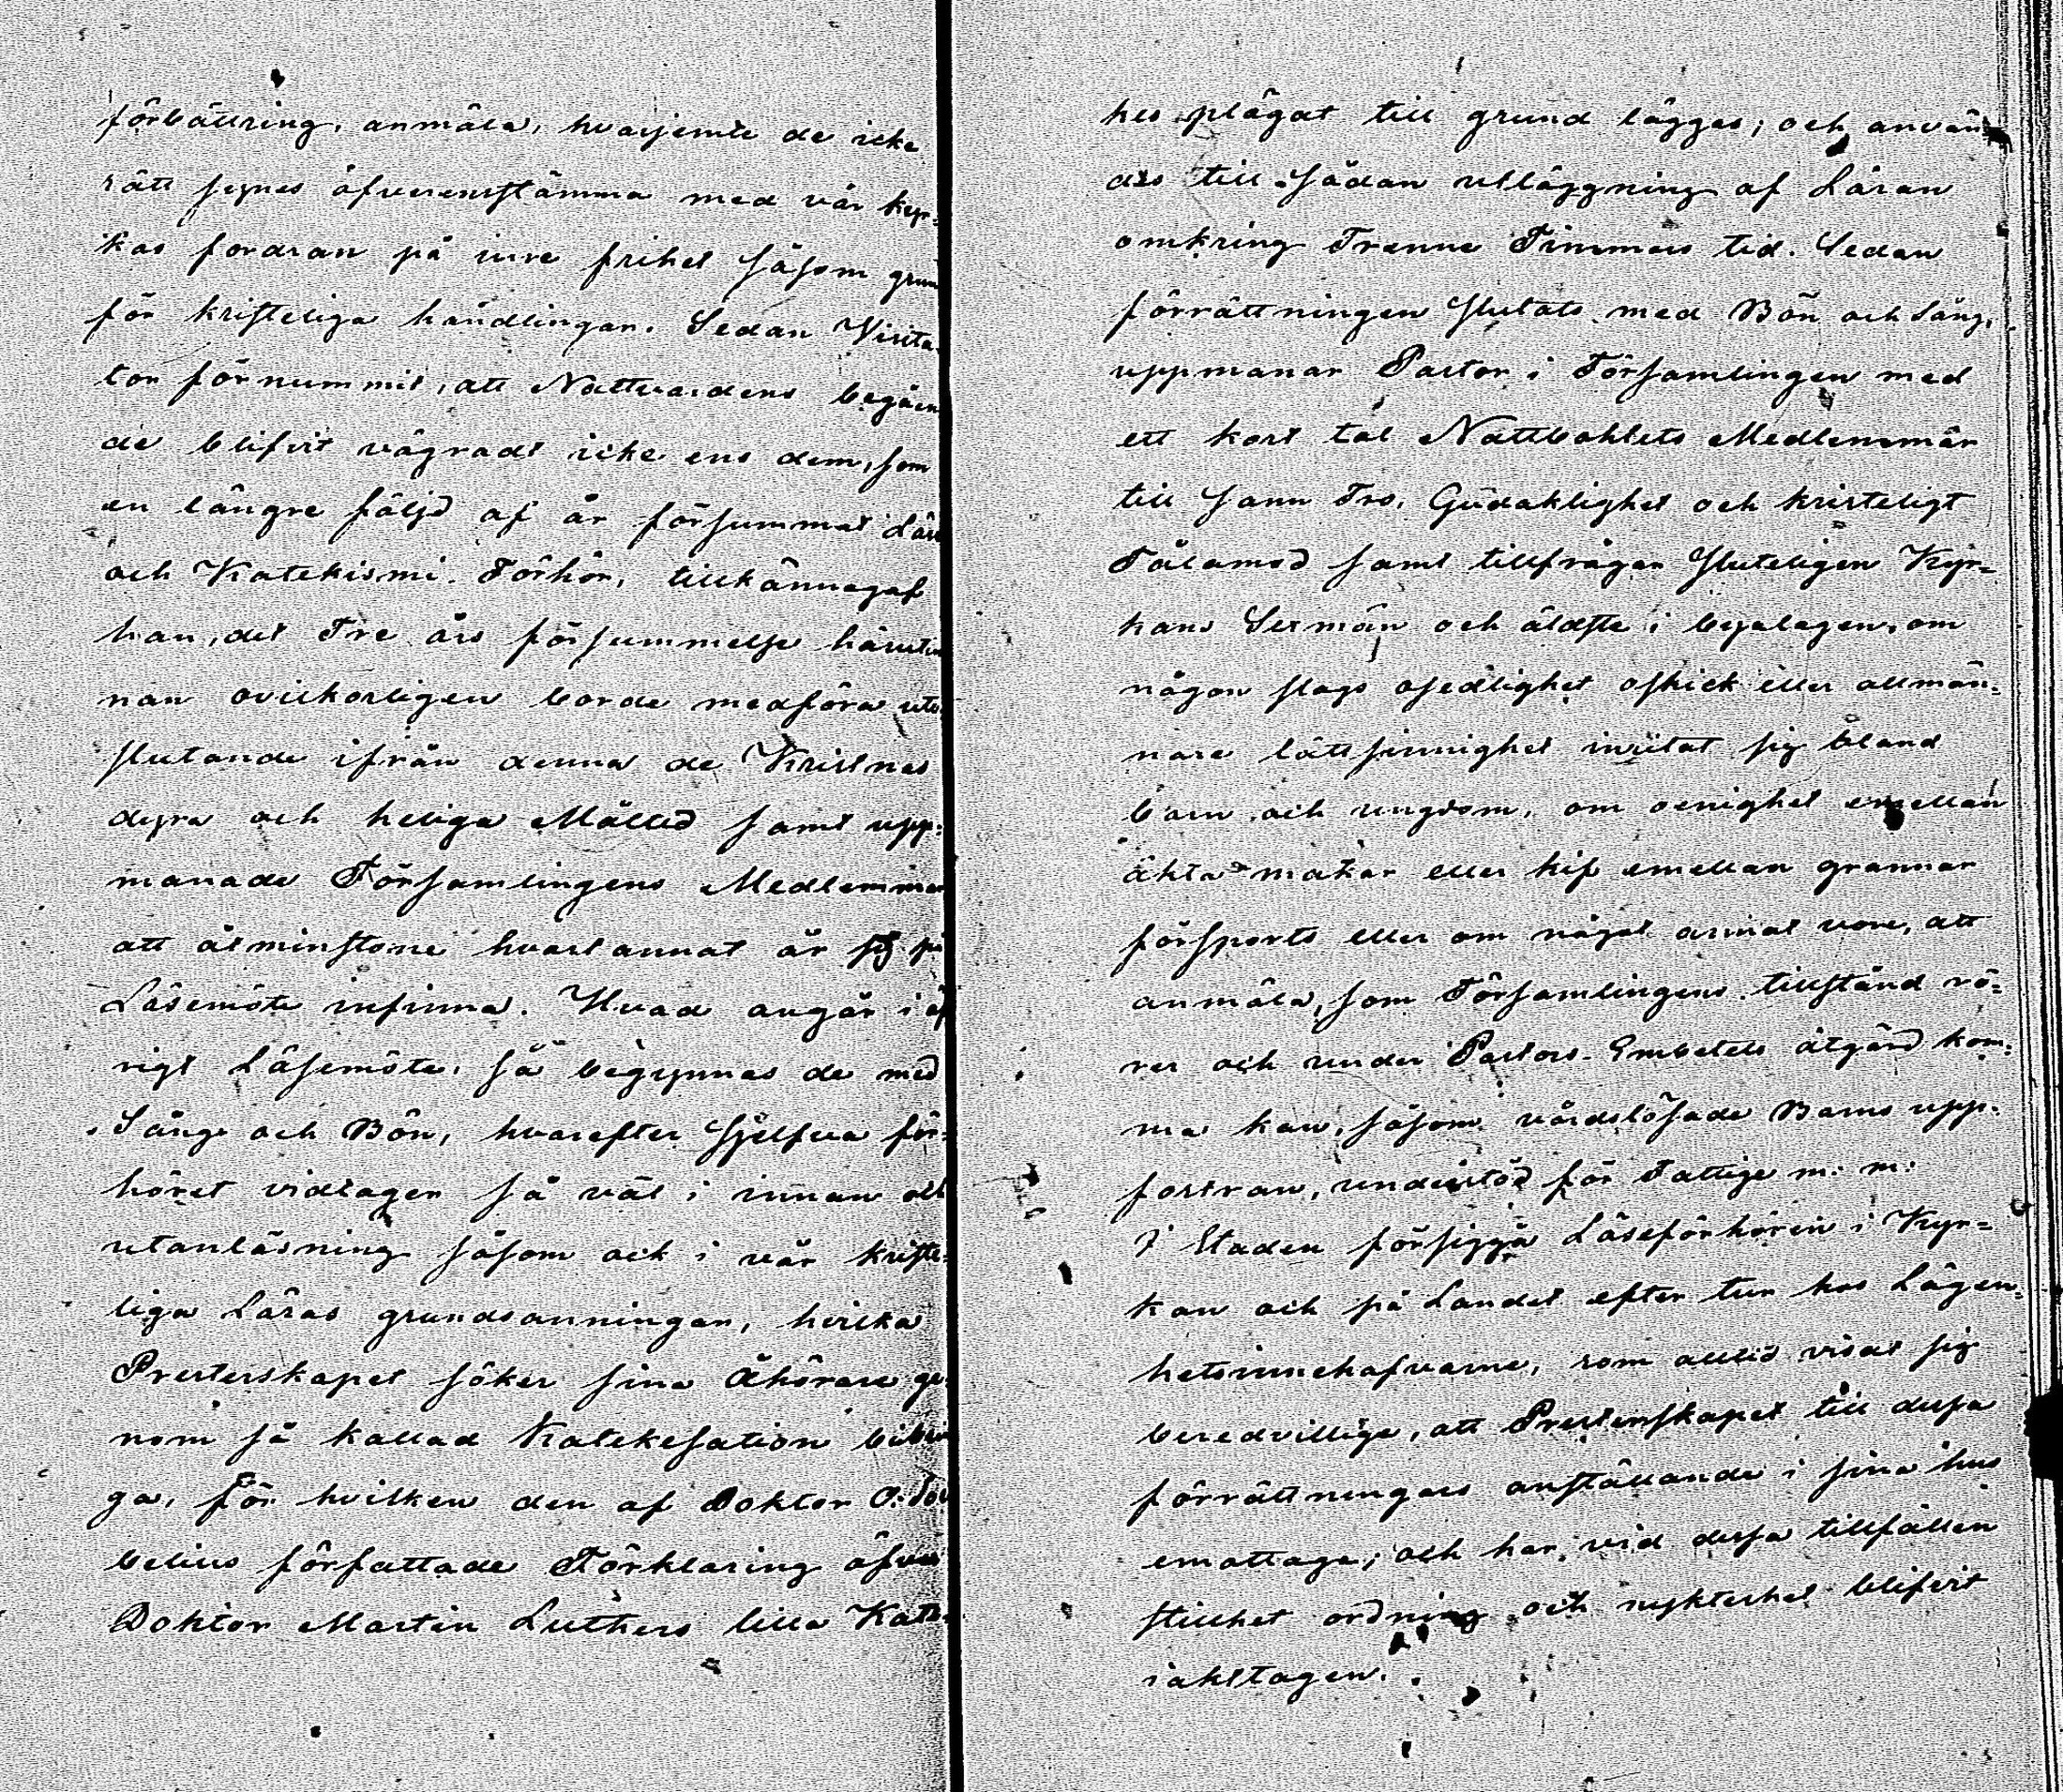 förbättring, anmäla, hvarjemte de icke
rätt synes öfverensstämma med vår kyr-
kas fordran på inre frihet såsom grun
för kristeliga handlingar. Sedan Visita-
tor förnummit, att Nattvardens begåen
de blifvit vägradt icke ens dem, som
en längre följd af år försummat Läse
och Katekismi-Förhör, tillkännagaf
han, det Tre års försummelse härut-
nan ovilkorligen borde medföra ute-
slutande ifrån denna de Kristnes
dyra och heliga Måltid samt upp-
manade Församlingens Medlemmar
att åtminstone hvartannat år sig på
Läsemöte infinna. Hvad angår i öf
rigt Läsemöte, så begynnes de med
Sång och Bön, hvarefter sjelfva för-
höret vidtager så väl i innan och
utanläsning såsom ock i vår kriste-
liga Läras grundsanningar, hvilka
Presterskapet söker sina Åhörare ge-
nom så kallad Katekesation bibrin
ga, för hvilken den af Doktor O. Sve
belius författade Förklaring öfver
Doktor Martin Luthers lilla Kate-
hes plägat till grund lägges; och använ-
des till sådan utläggning af Läran
omkring Trenne Timmars tid. Sedan
förrättningen slutats med Bön och Sång,
uppmanar Pastor i Församlingen med
ett kort tal Nattbohlets Medlemmar
till sann Tro, Gudaktighet och kristeligt
Tålamod samt tillfrågar sluteligen Kyr-
kans Sexmän och äldste i byalagen, om
någon slags osedlighet oskick eller allmän-
nare lättsinnighet inritat sig bland
barn och ungdom, om oenighet emellan
äkta makar eller kif emellan grannar
försports eller om något annat vore, att
anmäla, som Församlingens tillstånd rö-
rer och under Pastors-Embetets åtgärd kom-
ma kan, såsom vårdslösade Barns upp-
fostran, understöd för Fattige m. m.
I Staden försiggå Läseförhören i Kyr-
kan och på Landet efter tur hos Lägen-
hetsinnehafvarne, som alltid visat sig
beredvillige, att Presterskapet till dessa
förrättningars anställande i sina hus
emottaga; och har vid dessa tillfällen
stillhet ordning och nykterhet blifvit
iakttagen.